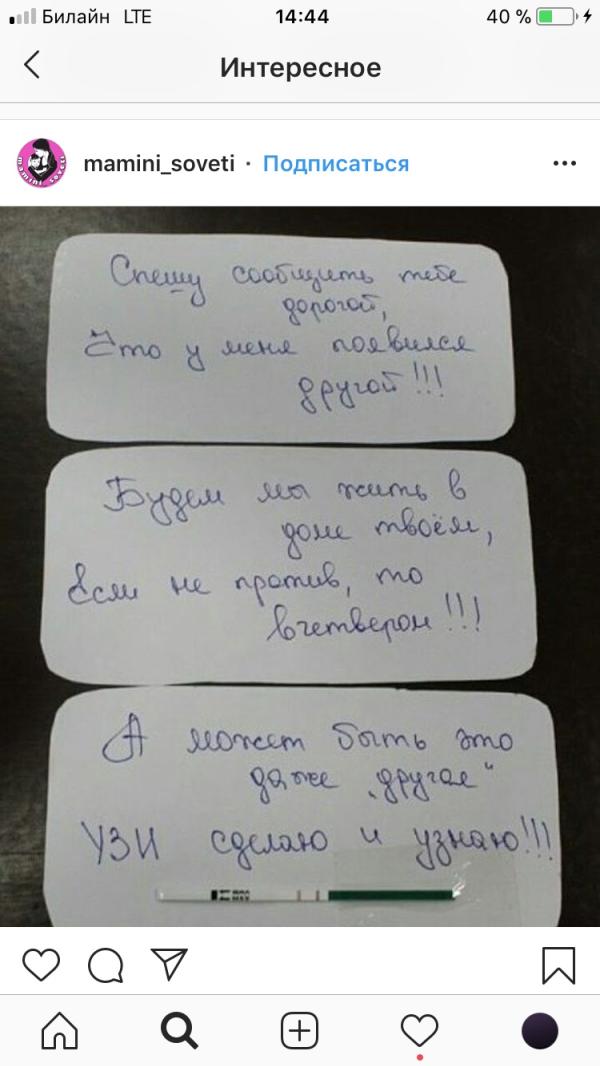 Билайн LTE 14:44 40 %
Интересное
mamini_soveti · Подписаться
mamini soveti
Спешу сообщить тебе
дорогой,
Что у меня появился
другой!!!
Будем мы жить в
доме твоём,
Если не против, то
вчетвером!!!
А может быть это
даже „другая“
УЗИ сделаю и узнаю!!!